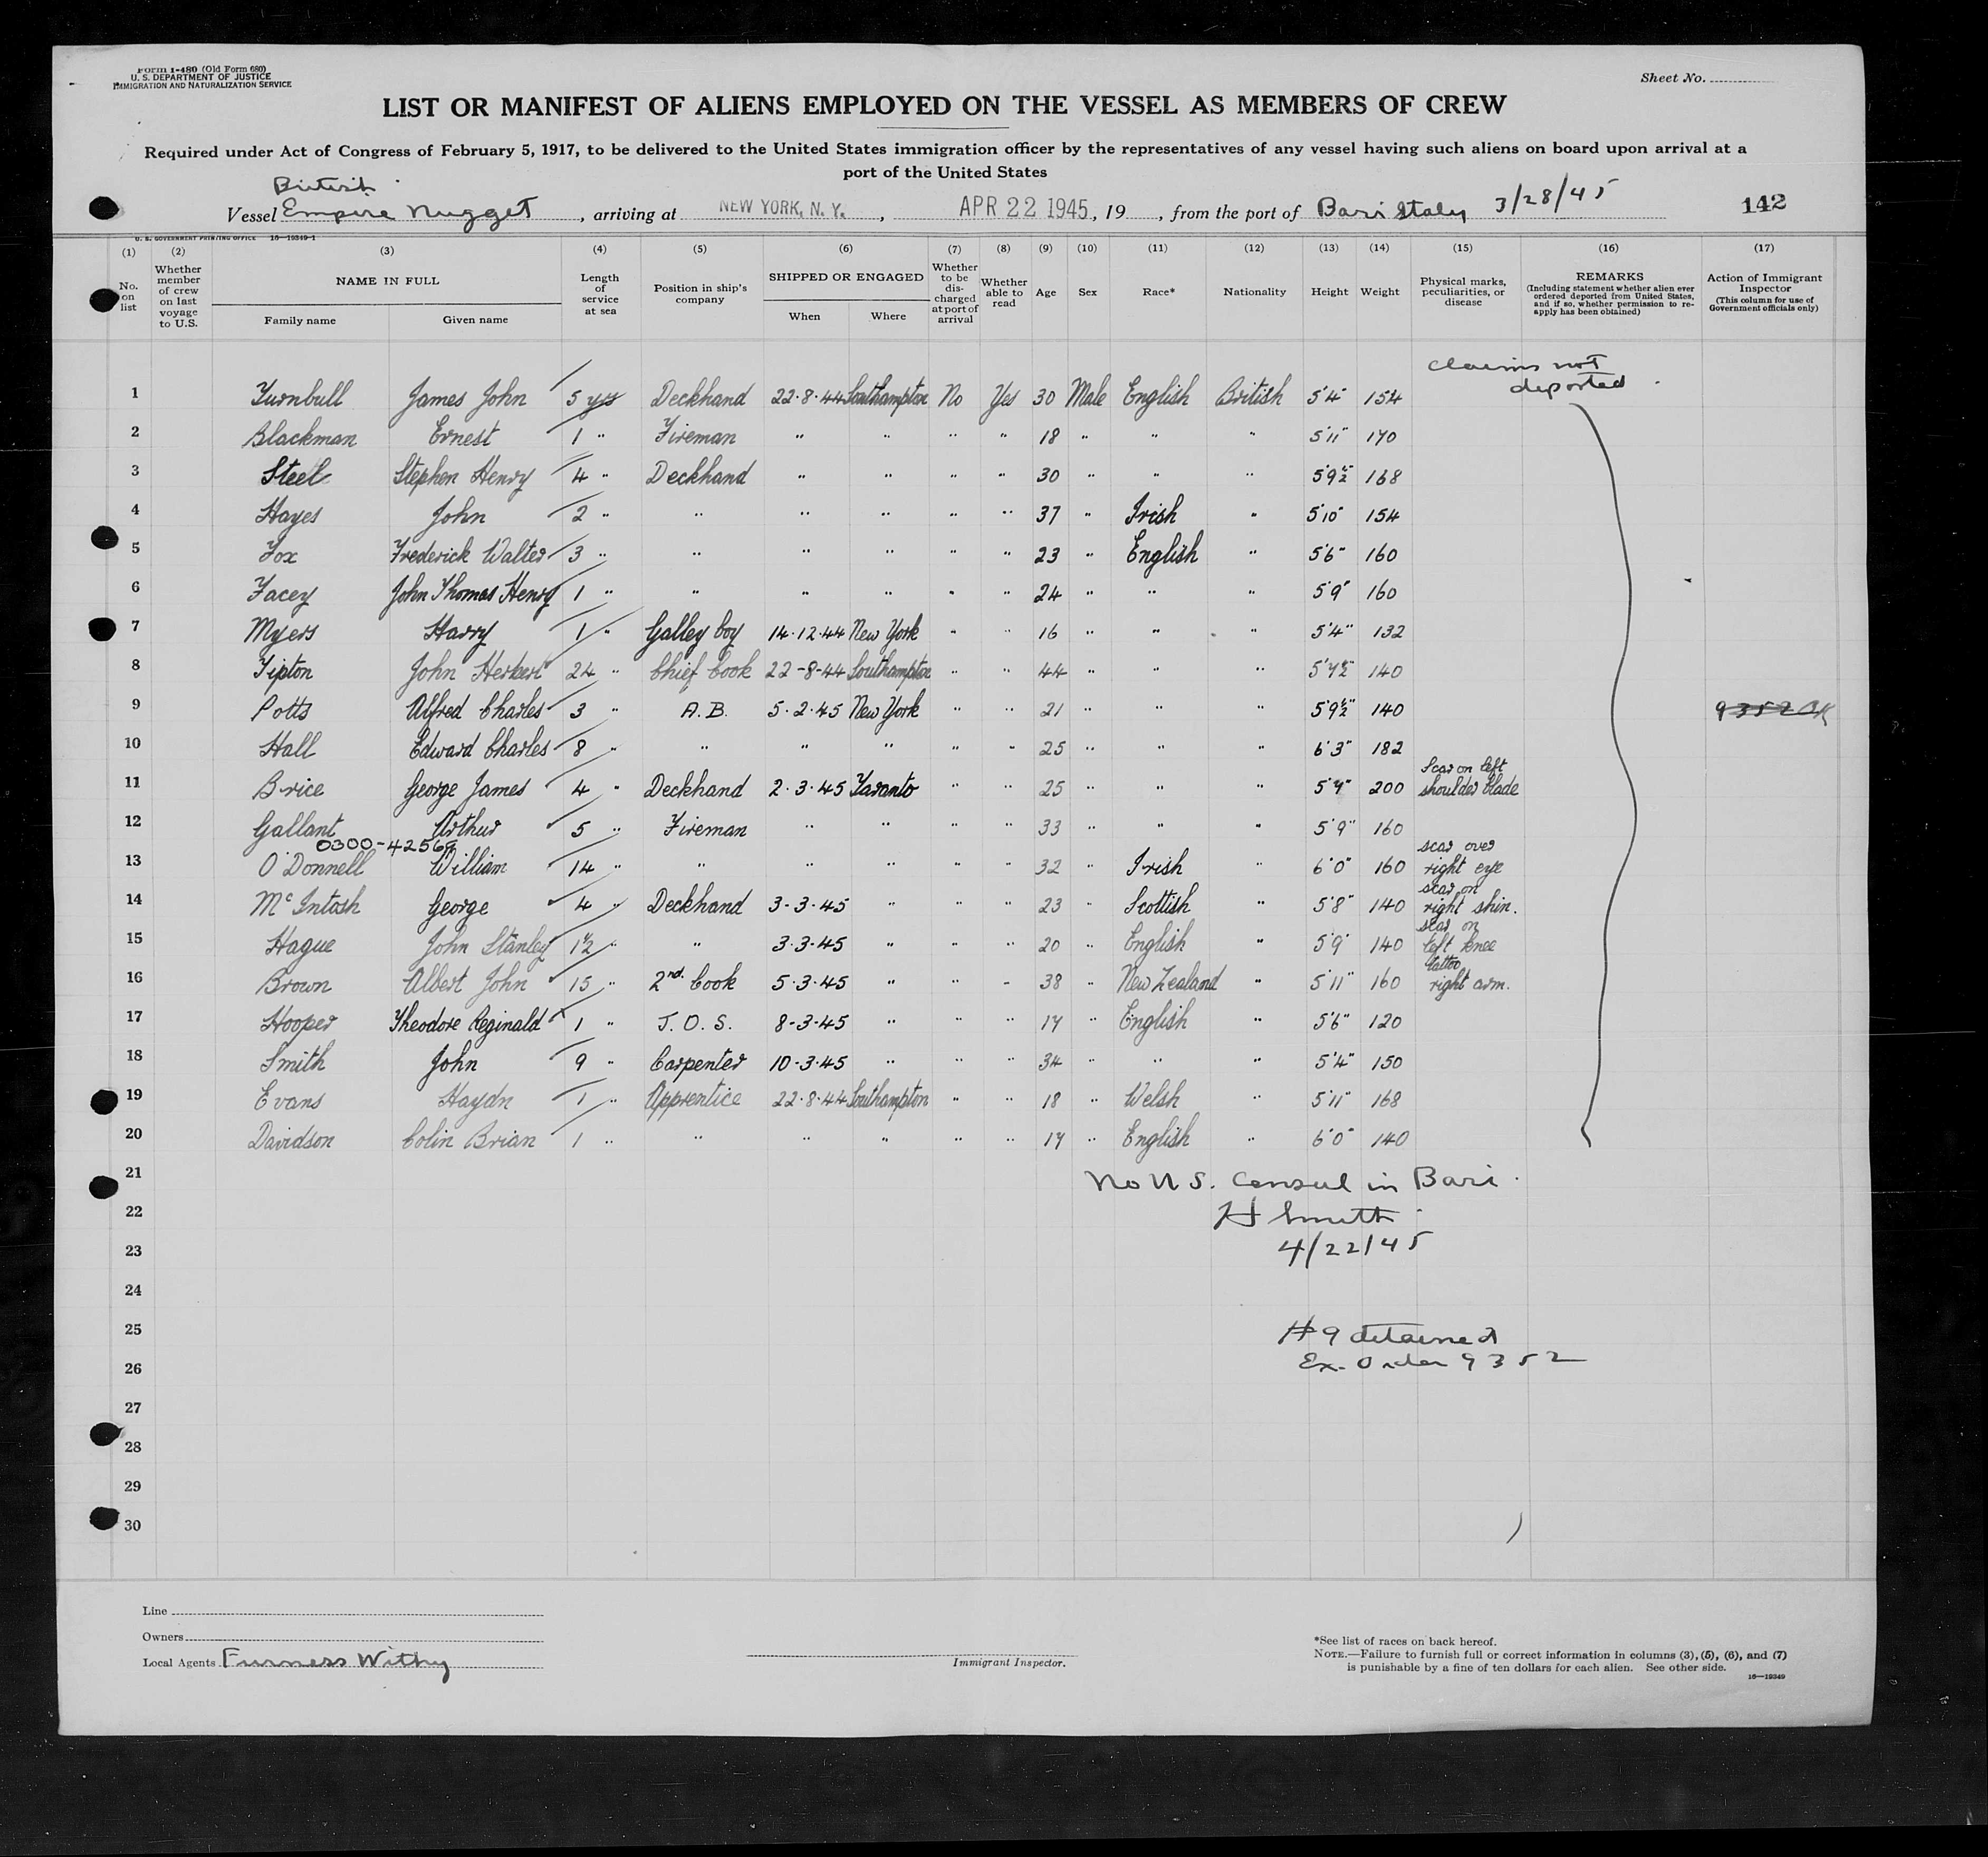 Form I-480 (Old Form 680)
U. S. DEPARTMENT OF JUSTICE
IMMIGRATION AND NATURALIZATION SERVICE
Sheet No.
LIST OR MANIFEST OF ALIENS EMPLOYED ON THE VESSEL AS MEMBERS OF CREW
Required under Act of Congress of February 5, 1917, to be delivered to the United States immigration officer by the representatives of any vessel having such aliens on board upon arrival at a
port of the United States
British
Vessel Empire Nugget, arriving at NEW YORK, N. Y., APR 22 1945, 19, from the port of Bari Italy 3/28/45 142
U. S. GOVERNMENT PRINTING OFFICE 16-19349-1
(1) (2) (3) (4) (5) (6) (7) (8) (9) (10) (11) (12) (13) (14) (15) (16) (17)
No. on list
Whether member of crew on last voyage to U.S.
NAME IN FULL
Family name Given name
Length of service at sea
Position in ship's company
SHIPPED OR ENGAGED
When Where
Whether to be discharged at port of arrival
Whether able to read
Age
Sex
Race*
Nationality
Height
Weight
Physical marks, peculiarities, or disease
REMARKS
(Including statement whether alien ever ordered deported from United States, and if so, whether permission to re-apply has been obtained)
Action of Immigrant Inspector
(This column for use of Government officials only)
claims not
deported
1 Turnbull James John 5 yrs Deckhand 22·8·44 Southampton No Yes 30 Male English British 5'4" 154
2 Blackman Ernest 1 " Fireman " " " " 18 " " " 5'11" 170
3 Steel Stephen Henry 4 " Deckhand " " " " 30 " " " 5'9½" 168
4 Hayes John 2 " " " " " " 37 " Irish " 5'10" 154
5 Fox Frederick Walter 3 " " " " " " 23 " English " 5'6" 160
6 Facey John Thomas Henry 1 " " " " " " 24 " " " 5'9" 160
7 Myers Harry 1 " Galley boy 14·12·44 New York " " 16 " " " 5'4" 132
8 Tipton John Herbert 24 " Chief Cook 22-8-44 Southampton " " 44 " " " 5'7½" 140
9 Potts Alfred Charles 3 " A.B. 5·2·45 New York " " 21 " " " 5'9½" 140 9352
10 Hall Edward Charles 8 " " " " " " 25 " " " 6'3" 182
11 Brice George James 4 " Deckhand 2·3·45 Taranto " " 25 " " " 5'7" 200 Scar on left shoulder blade
12 Gallant Arthur 5 " Fireman " " " " 33 " " " 5'9" 160
0300-42569
13 O'Donnell William 14 " " " " " " 32 " Irish " 6'0" 160 scar over right eye
14 McIntosh George 4 " Deckhand 3-3-45 " " " 23 " Scottish " 5'8" 140 scar on right shin.
15 Hague John Stanley 1½ " " 3·3·45 " " " 20 " English " 5'9" 140 scar on left knee
16 Brown Albert John 15 " 2nd. Cook 5·3·45 " " " 38 " New Zealand " 5'11" 160 tattoo right arm.
17 Hooper Theodore Reginald 1 " J.O.S. 8-3-45 " " " 17 " English " 5'6" 120
18 Smith John 9 " Carpenter 10-3-45 " " " 34 " " " 5'4" 150
19 Evans Haydn 1 " Apprentice 22·8·44 Southampton " " 18 " Welsh " 5'11" 168
20 Davidson Colin Brian 1 " " " " " " 17 " English " 6'0" 140
21 No U S. Consul in Bari.
22 H Smith
23 4/22/45
24
25 #9 detained
26 Ex. Order 9352
27
28
29
30
Line
Owners
Local Agents Furness Withy
Immigrant Inspector.
*See list of races on back hereof.
NOTE.—Failure to furnish full or correct information in columns (3), (5), (6), and (7)
is punishable by a fine of ten dollars for each alien. See other side.
16-19349